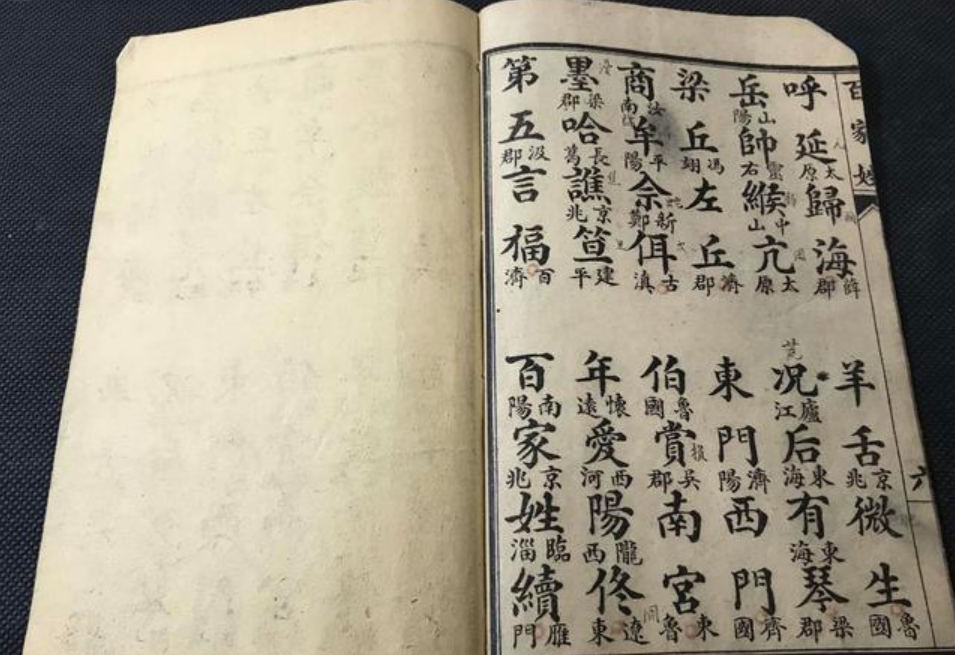 百家姓 六
呼延太原歸海薛郡 羊舌京兆微生魯國
岳山陽帥右緱中山亢太原 況廬江后東海有東海琴梁郡
梁丘馮翊左丘濟郡 東門濟陽西門齊國
商汝南牟平陽佘新鄭佴古滇 伯魯國賞吳郡南宮東魯
墨梁郡哈長葛譙京兆笪建平 年懷遠愛西河陽隴西佟遼東
第五汲郡言福百濟 百南陽家京兆姓臨淄續雁門